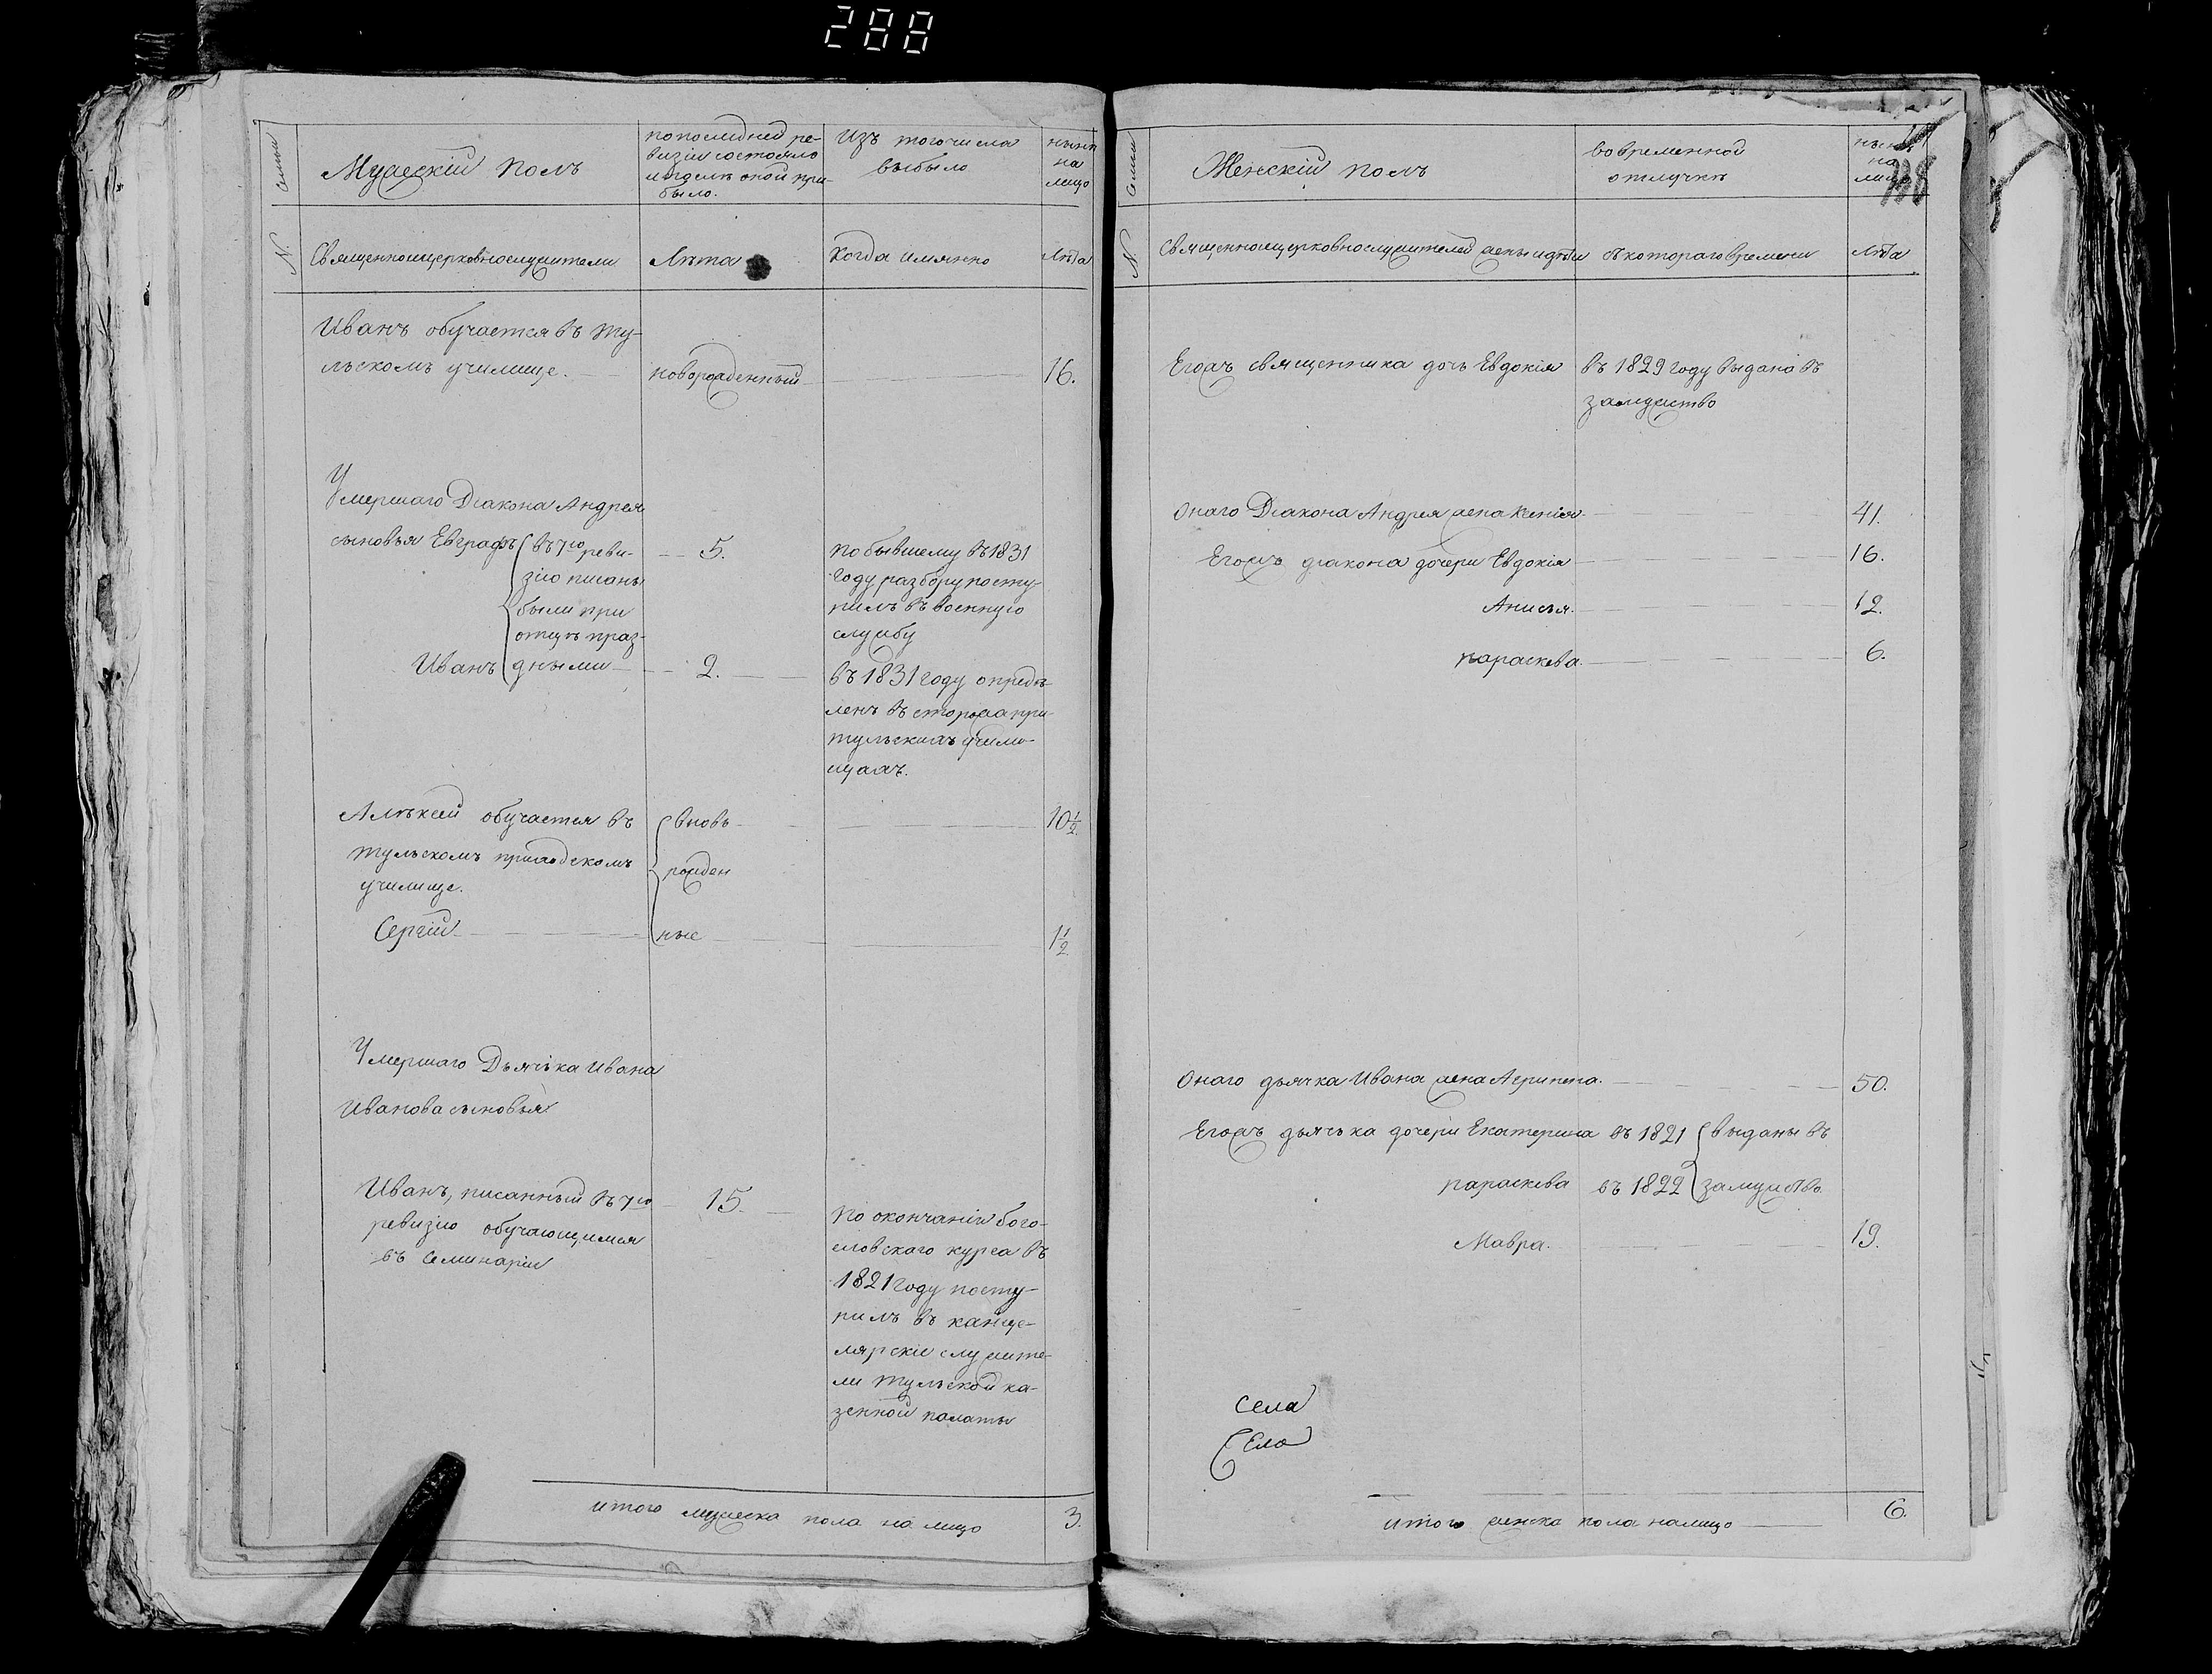 288
семьи
Мужескiй полъ
по последней ре-
визiи состояло
и после оной при-
было.
Изъ того числа
выбыло
ныне
на
лицо
N.
Священноицерковнослужители
Лѣта
Когда имянно
Лѣта
Иванъ обучается въ Ту-
льскомъ училище.
новорожденный
16.
Умершаго Дiакона Андрея
сыновья Евграфъ
въ 7ю реви-
зiю писаны
были при
отцѣ праз-
дными
5.
по бывшему въ 1831
году разбору посту-
пилъ въ военную
службу
Иванъ
2.
въ 1831 году опредѣ-
ленъ въ сторожа при
тульскихъ учили-
щахъ.
Алѣксей обучается въ
тульскомъ приходскомъ
училище.
вновь
рожден
ные
10 1/2
Сергiй
1 1/2
Умершаго Дьячька Ивана
Иванова сыновья
Иванъ, писанный въ 7ю
ревизiю обучающимся
въ семинарiи
15.
по окончанiи бого-
словскаго курса въ
1821 году посту-
пилъ въ канце-
лярскiе служите-
ли тульской ка-
зенной палаты
итого мужеска пола на лицо 3.
семьи
Женскiй полъ
во временной
отлучкѣ
ныне
на
лицо
N.
Священноицерковнослужителей жены и дѣти
съ котораго времени
Лѣта
Егожъ священника дочь Евдокiя
въ 1829 году выдана въ
замужство
онаго Дiакона Андрея жена Ксенiя 41.
Егожъ дiакона дочери Евдокiя 16.
Анисья. 12.
параскева. 6.
Онаго дьячка Ивана жена Агрипена. 50.
Егожъ дьячька дочери Екатерина въ 1821 выданы въ
параскева въ 1822 замужство.
Мавра. 19.
села
Села
итого женска пола налицо 6.